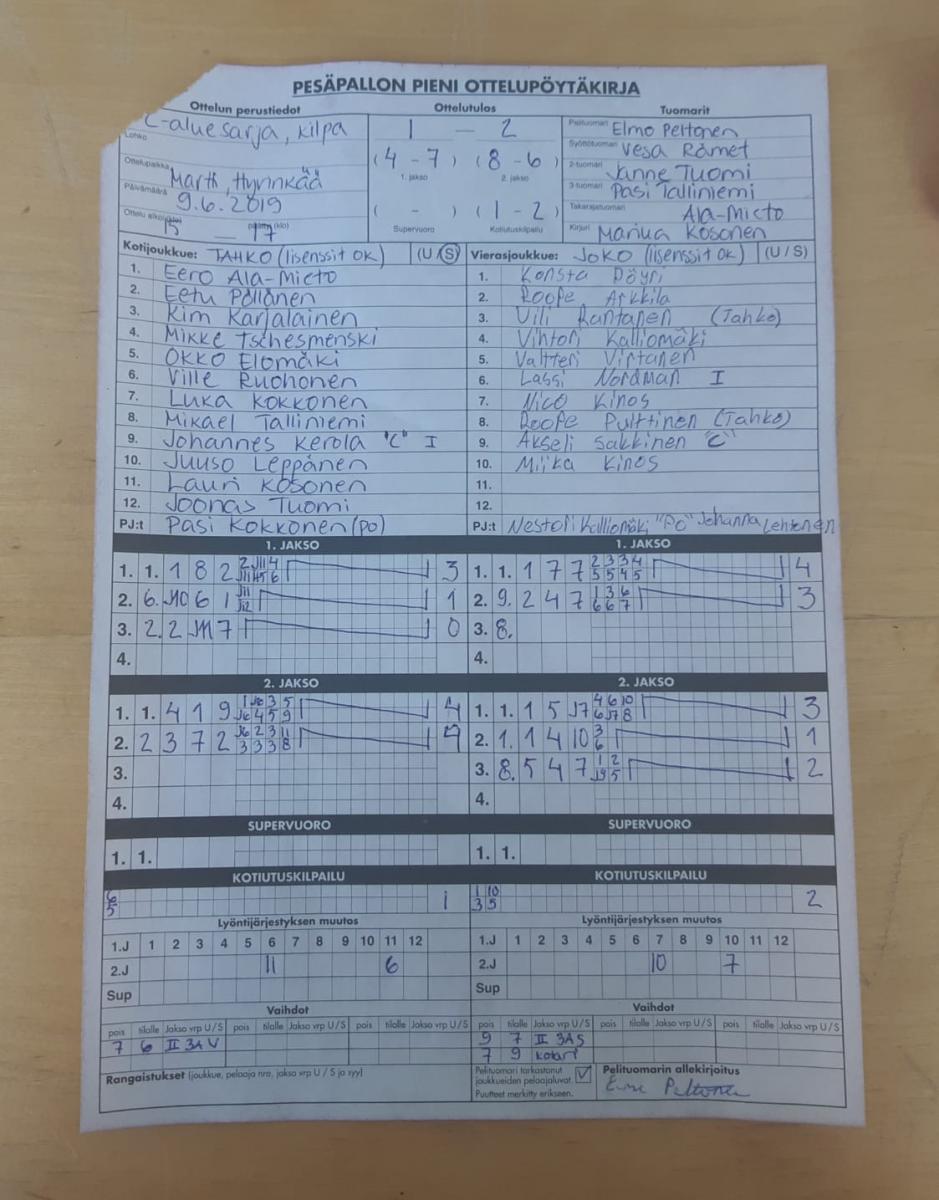 PESÄPALLON PIENI OTTELUPÖYTÄKIRJA
Ottelun perustiedot Ottelutulos Tuomarit
Lohko C-aluesarja, kilpa
Ottelupaikka Martti, Hyvinkää
Päivämäärä 9.6.2019
Ottelu alkoi (klo) 15 päättyi (klo) 17
1 – 2
(4 – 7) (8 – 6)
1. jakso 2. jakso
( - ) (1 – 2)
Supervuoro Kotiutuskilpailu
Pelituomari Elmo Peltonen
Syöttötuomari Vesa Rämet
2-tuomari Janne Tuomi
3-tuomari Pasi Talliniemi
Takarajatuomari Ala-Micto
Kirjuri Mariua Kosonen
Kotijoukkue: TAHKO (lisenssit OK) (U/S)
1. Eero Ala-Micto
2. Eetu Pöllänen
3. Kim Karjalainen
4. Mikke Tschesmenski
5. Okko Elomäki
6. Ville Ruohonen
7. Luka Kokkonen
8. Mikael Talliniemi
9. Johannes Kerola "C" I
10. Juuso Leppänen
11. Lauri Kosonen
12. Joonas Tuomi
PJ:t Pasi Kokkonen (po)
Vierasjoukkue: JOKO (lisenssit OK) (U/S)
1. Konsta Pöyri
2. Roope Arkkila
3. Vili Rantanen (Tahko)
4. Vihtori Kalliomäki
5. Valtteri Virtanen
6. Lassi Nordman I
7. Nico Kinos
8. Roope Pulttinen (Tahko)
9. Akseli Sakkinen "C"
10. Miika Kinos
11.
12.
PJ:t Nestori Kalliomäki "PO" Johanna Lehtonen
1. JAKSO
1. 1. 1 8 2 3
2. 6. 6 1 1
3. 2. 2 7 0
4.
1. JAKSO
1. 1. 1 7 7 2 3 3 4 4
5 5 4 5
2. 9. 2 4 7 1 3 6 3
6 6 7
3. 8.
4.
2. JAKSO
1. 1. 4 1 9 4
2. 2 3 7 2 4
3.
4.
2. JAKSO
1. 1. 1 5 3
2. 1. 1 4 10 3 1
6
3. 8. 5 4 7 2
4.
SUPERVUORO
1. 1.
SUPERVUORO
1. 1.
KOTIUTUSKILPAILU
6 1
5
KOTIUTUSKILPAILU
1 10 2
3 5
Lyöntijärjestyksen muutos
1.J 1 2 3 4 5 6 7 8 9 10 11 12
2.J 11 6
Sup
Lyöntijärjestyksen muutos
1.J 1 2 3 4 5 6 7 8 9 10 11 12
2.J 10 7
Sup
Vaihdot
pois tilalle Jakso vrp U/S pois tilalle Jakso vrp U/S pois tilalle Jakso vrp U/S
7 6 II 3A V
Vaihdot
pois tilalle Jakso vrp U/S pois tilalle Jakso vrp U/S pois tilalle Jakso vrp U/S
9 7 II 3A S
7 9 kotari
Rangaistukset (joukkue, pelaaja nro, jakso vrp U / S ja syy)
Pelituomari tarkastanut
joukkueiden pelaajaluvat.
Puutteet merkitty erikseen.
Pelituomarin allekirjoitus
Elmo Peltonen